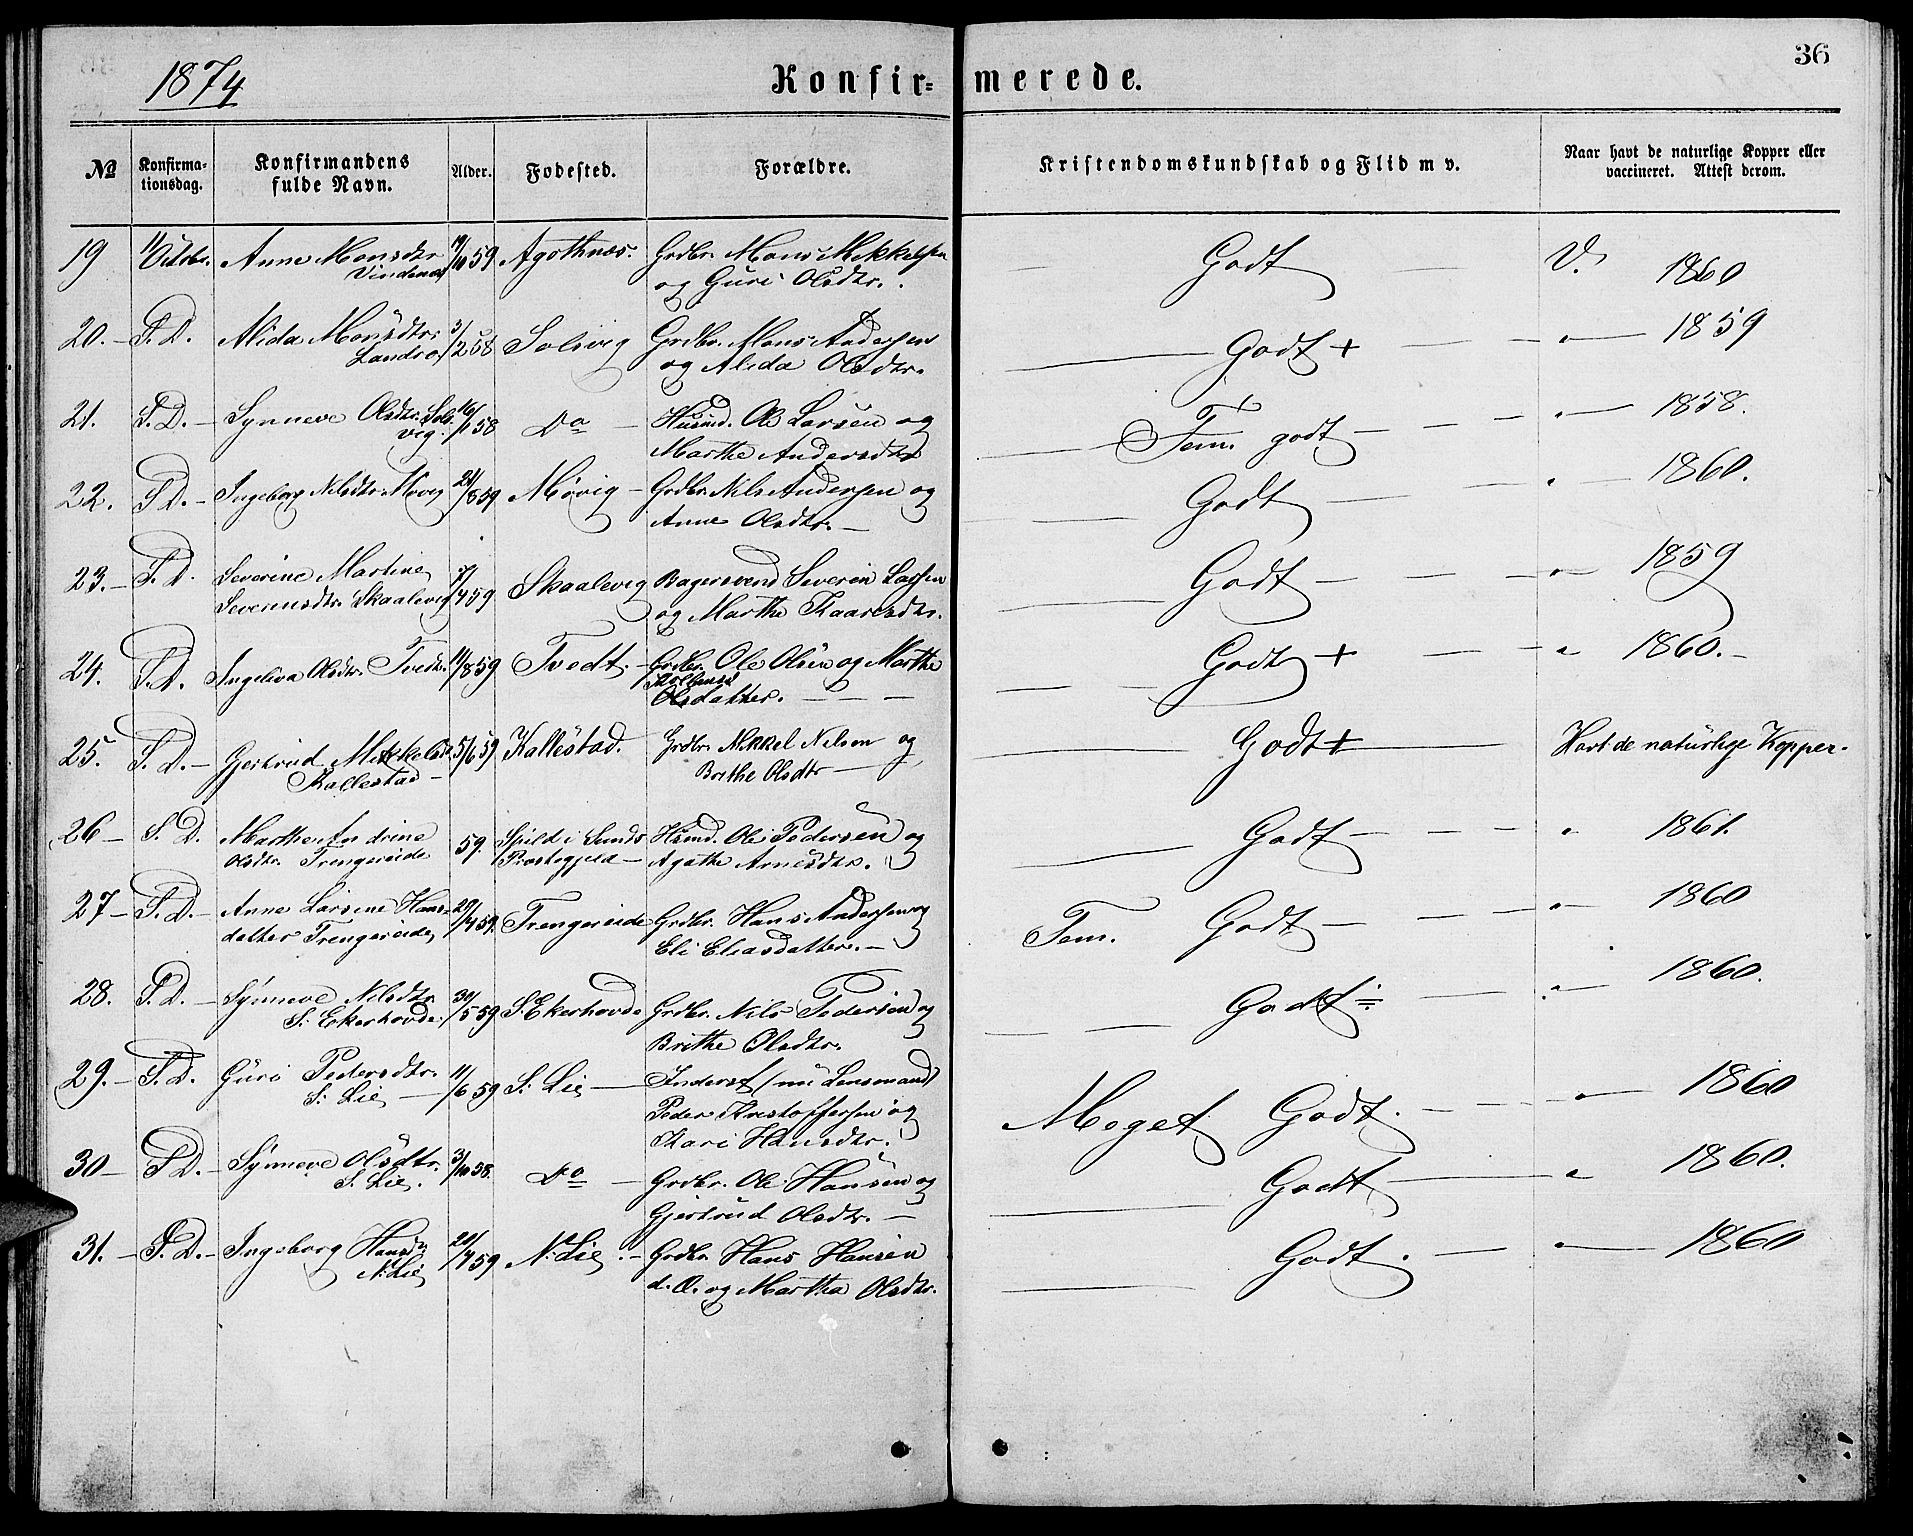 36
1874
Konfir= merede.
No Konfirma-tionsdag. Konfirmandens fulde Navn. Alder. Fødested. Forældre. Kristendomskundskab og Flid m v. Naar havt de naturlige Kopper eller vaccineret. Attest derom.
19 11/ Octbr. Anne Monsdtr 19/10 59 Agothnæs. Grdbr. Mons Mikkelsen — Godt — V. 1860
Vindenes og Guri Olsdtr.
20. – S. D. Alida Monsdtr. 3/2 58 Solsvig Grdbr. Mons Andersen — Godt + — — „ — 1859
Landro og Alida Olsdtr.
21. S. D. – Synneve Olsdtr. Sols- 16/1 58 Do — Husmd. Ole Larsen og — Tem. godt — — — „ — 1858.
vig. Marthe Andersdtr
22. S D. – Ingeborg Nilsdtr. Møvig 21/8 59 Møvig – Grdbr. Nils Andersen og — Godt — — „ — 1860.
Anne Olsdtr. —
23. – S. D. Severine Martine 7/4 59 Skaalevig Bagersvend Severin Larsen — Godt — — — „ — 1859
Severinsdtr. Skaalevig og Marthe Kaaresdtr.
24. S. D. Ingeliva Olsdtr. Tvedt. 11/8 59 Tvedt. – Grdbr. Ole Olsen og Marthe — Godt + — — „ 1860. –
Olsdatter. — — —
25. S. D. – Gjertrud Mikkelsd. 5/6 59 Kallestad. Grdbr. Mikkel Nilsen og — Godt + — Havt de naturlige Kopper.
Kallestad – Brithe Olsdtr —
26 – S. D. Marthe Andrine 59. Spild i Sunds Husmd. Ole Pedersen og — Godt — — — „ 1861.
Olsdtr. Trengereide Præstegjeld – Agathe Arnesdtr.
27 – S. D. – Anne Larsine Hans- 29/4 59. Trengereide Grdbr. Hans Andersen og Tem. Godt — — — „ — 1860
datter Trengereide Eli Eliasdatter. —
28. S. D. – Synneve Nilsdtr. 30/5 59 S. Ekerhovde Grdbr. Nils Pedersen og — — Godt — — „ — 1860.
S. Ekerhovde. Brithe Olsdtr.
29. – S. D. Guri Pedersdtr. 11/6 59 S. Lie — Inderst (nu Lensmand) Meget Godt. — — — „ — 1860
S. Lie — Peder Kristoffersen og
Kari Hansdtr.
30 – S D. – Synneve Olsdtr. 3/10 58. Do — Grdbr. Ole Hansen og — Godt — „ 1860.
S. Lie. Gjertrud Olsdtr. —
31. – S. D. – Ingeborg Hansd 20/4 59 N. Lie. – Grdbr. Hans Hansen — Godt. — — „ — 1860
N. Lie d. Æ. og Martha Olsdtr.